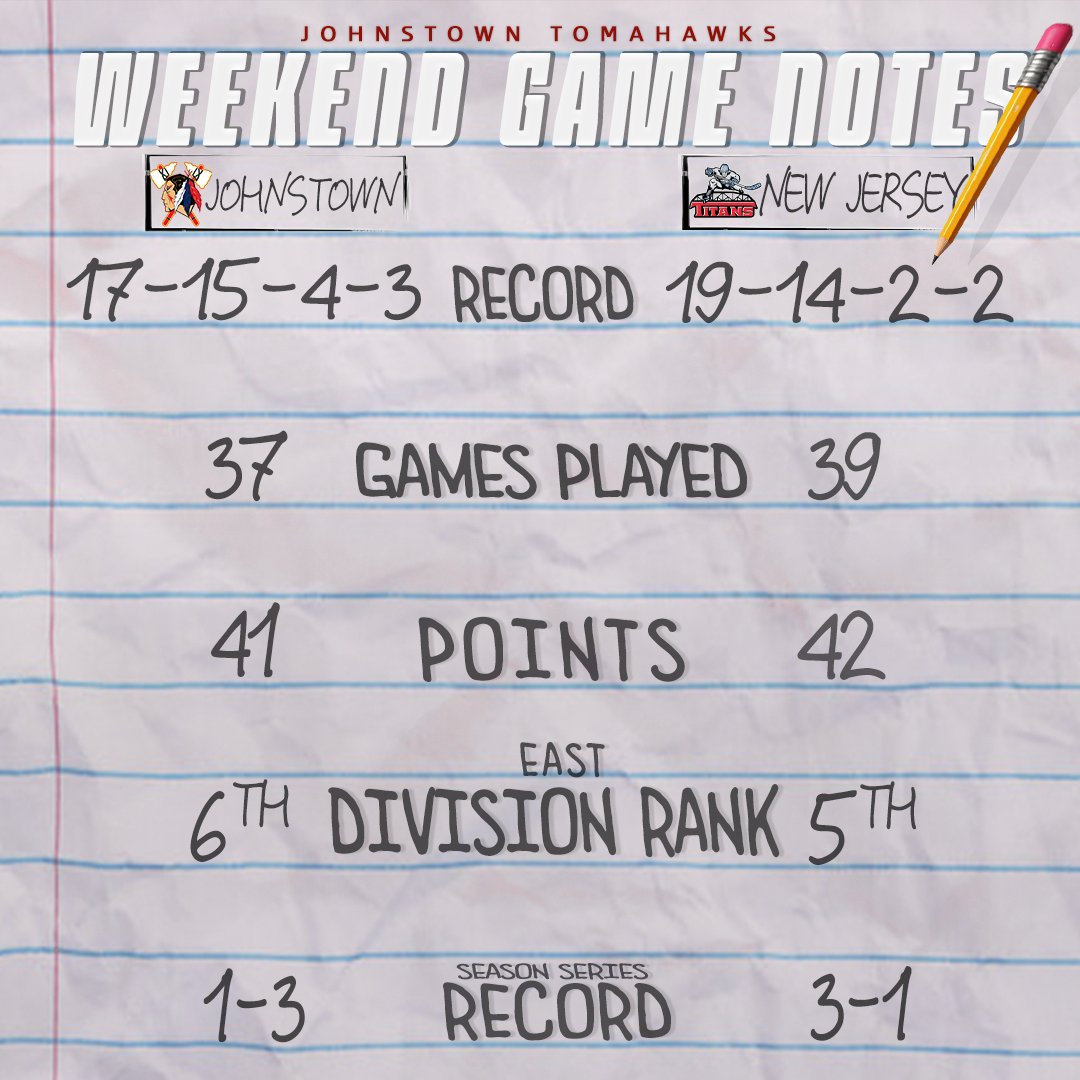 JOHNSTOWN TOMAHAWKS
WEEKEND GAME NOTES
JOHNSTOWN TITANS NEW JERSEY
17-15-4-3 RECORD 19-14-2-2
37 GAMES PLAYED 39
41 POINTS 42
EAST
6TH DIVISION RANK 5TH
SEASON SERIES
1-3 RECORD 3-1